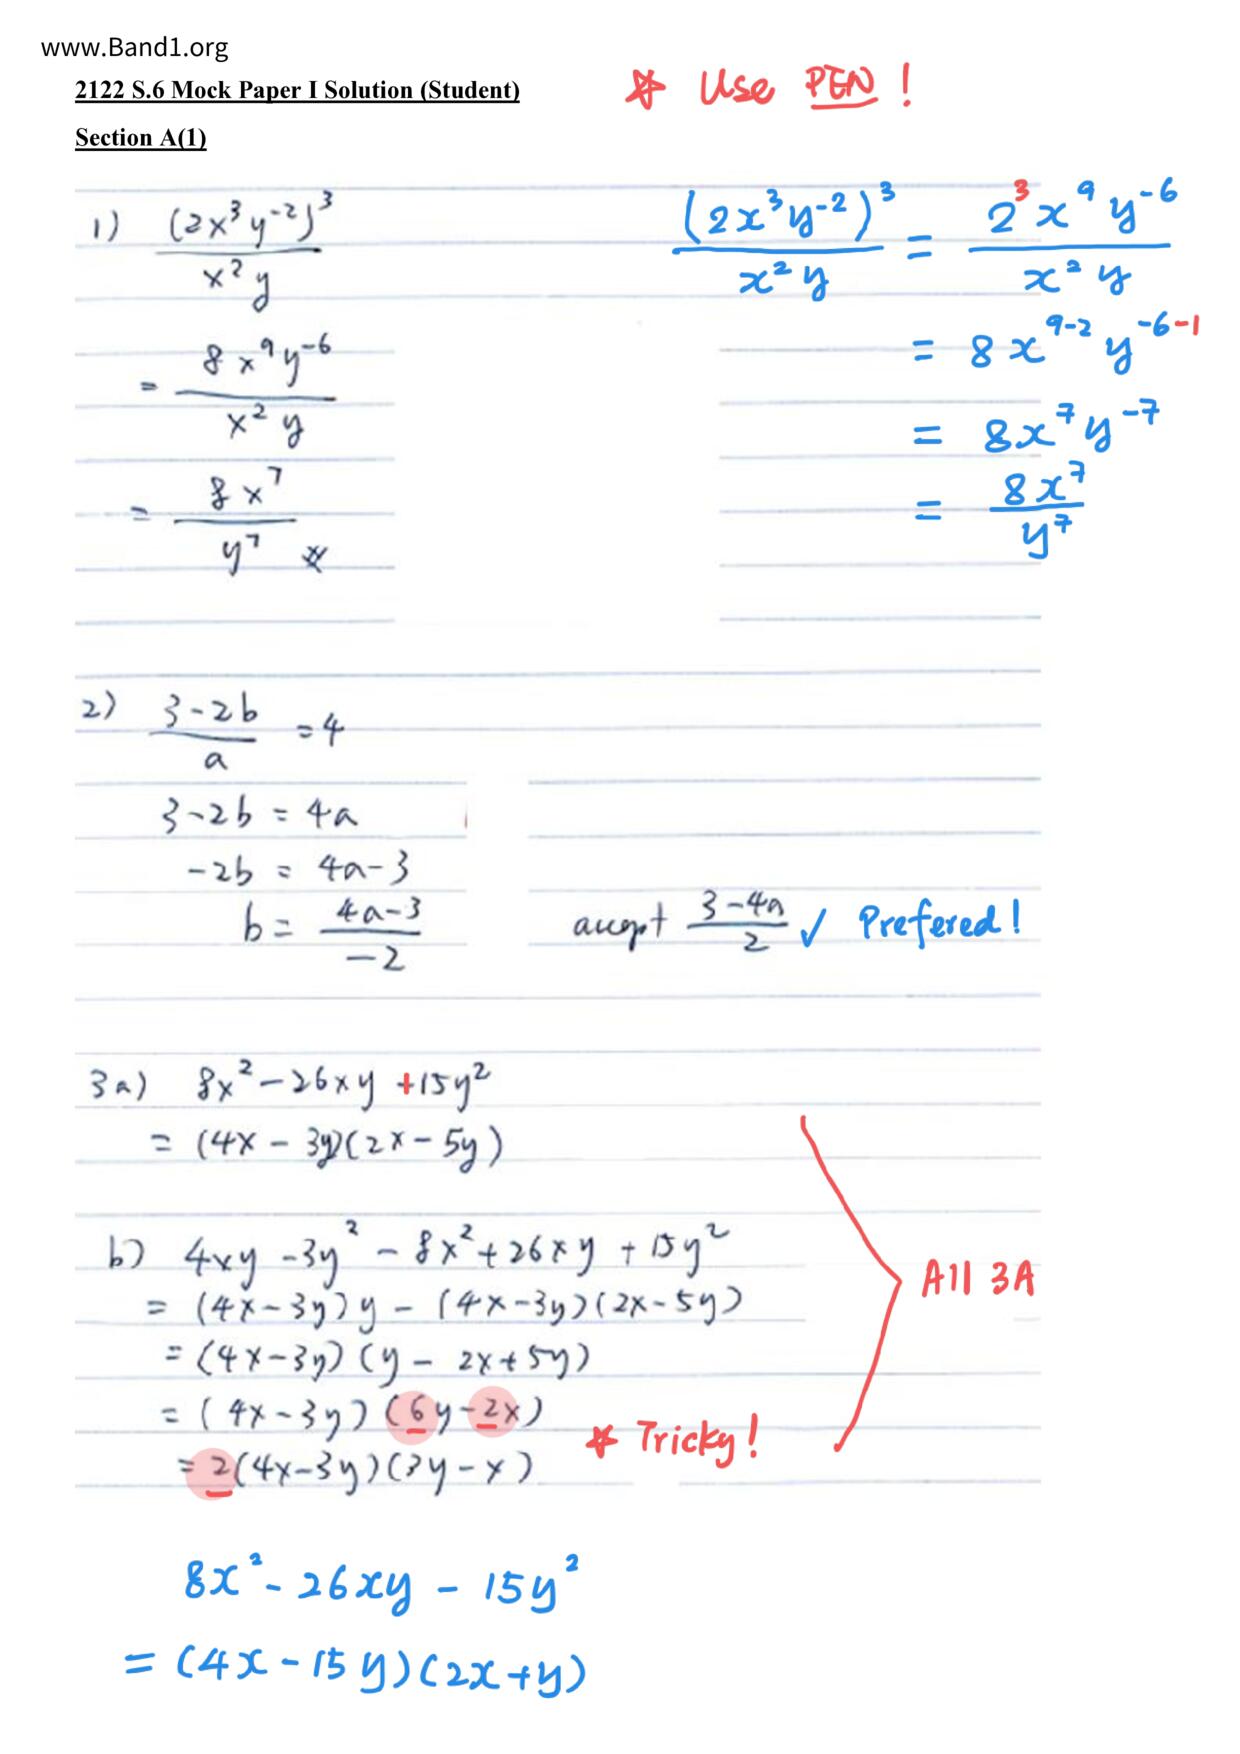 www.Band1.org
2122 S.6 Mock Paper I Solution (Student)
* Use PEN !
Section A(1)
1) (2x³y⁻²)³ / x²y
= 8x⁹y⁻⁶ / x²y
= 8x⁷ / y⁷
(2x³y⁻²)³ / x²y = 2³x⁹y⁻⁶ / x²y
= 8x⁹⁻²y⁻⁶⁻¹
= 8x⁷y⁻⁷
= 8x⁷ / y⁷
2) (3-2b) / a = 4
3-2b = 4a
-2b = 4a-3
b = (4a-3) / -2
accept (3-4a) / 2 ✓ Prefered!
3a) 8x² - 26xy + 15y²
= (4x - 3y)(2x - 5y)
b) 4xy - 3y² - 8x² + 26xy + 15y²
= (4x-3y)y - (4x-3y)(2x-5y)
= (4x-3y)(y - 2x+5y)
= (4x-3y)(6y-2x)
= 2(4x-3y)(3y-x)
* Tricky!
All 3A
8x² - 26xy - 15y²
= (4x - 15y)(2x+y)